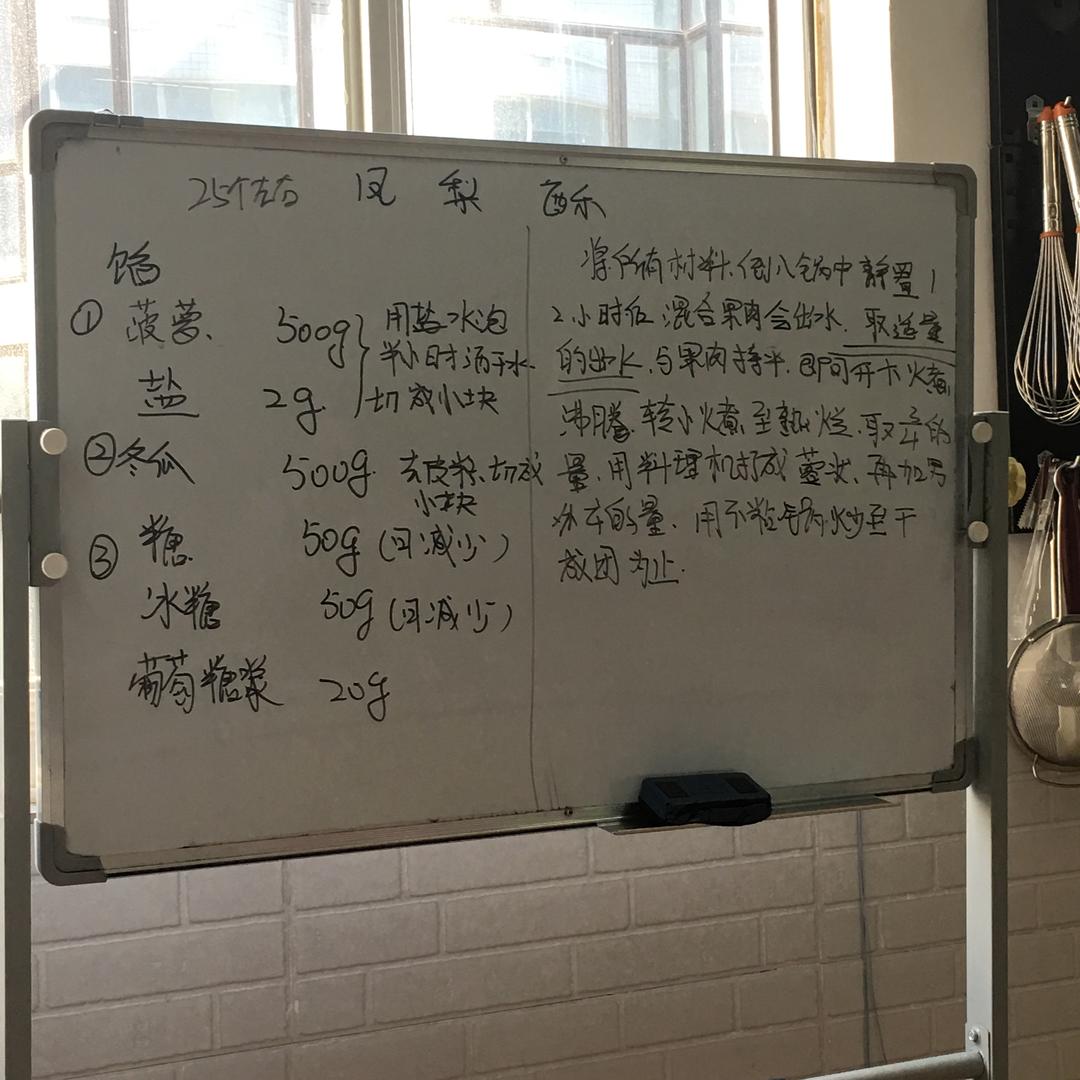 25个左右 凤 梨 酥
馅
① 菠萝 500g 用盐水泡
半小时沥干水
盐 2g 切成小块
② 冬瓜 500g 去皮籽、切成
小块
③ 糖 50g (可减少)
冰糖 50g (可减少)
葡萄糖浆 20g
将所有材料倒入锅中静置1
2小时后混合果肉会出水.取适量
的出水,与果肉持平,即可开大火煮
沸腾,转小火煮至熟烂.取3/4的
量,用料理机打成蓉状,再加另
外 的量,用不粘锅炒至干
成团为止.